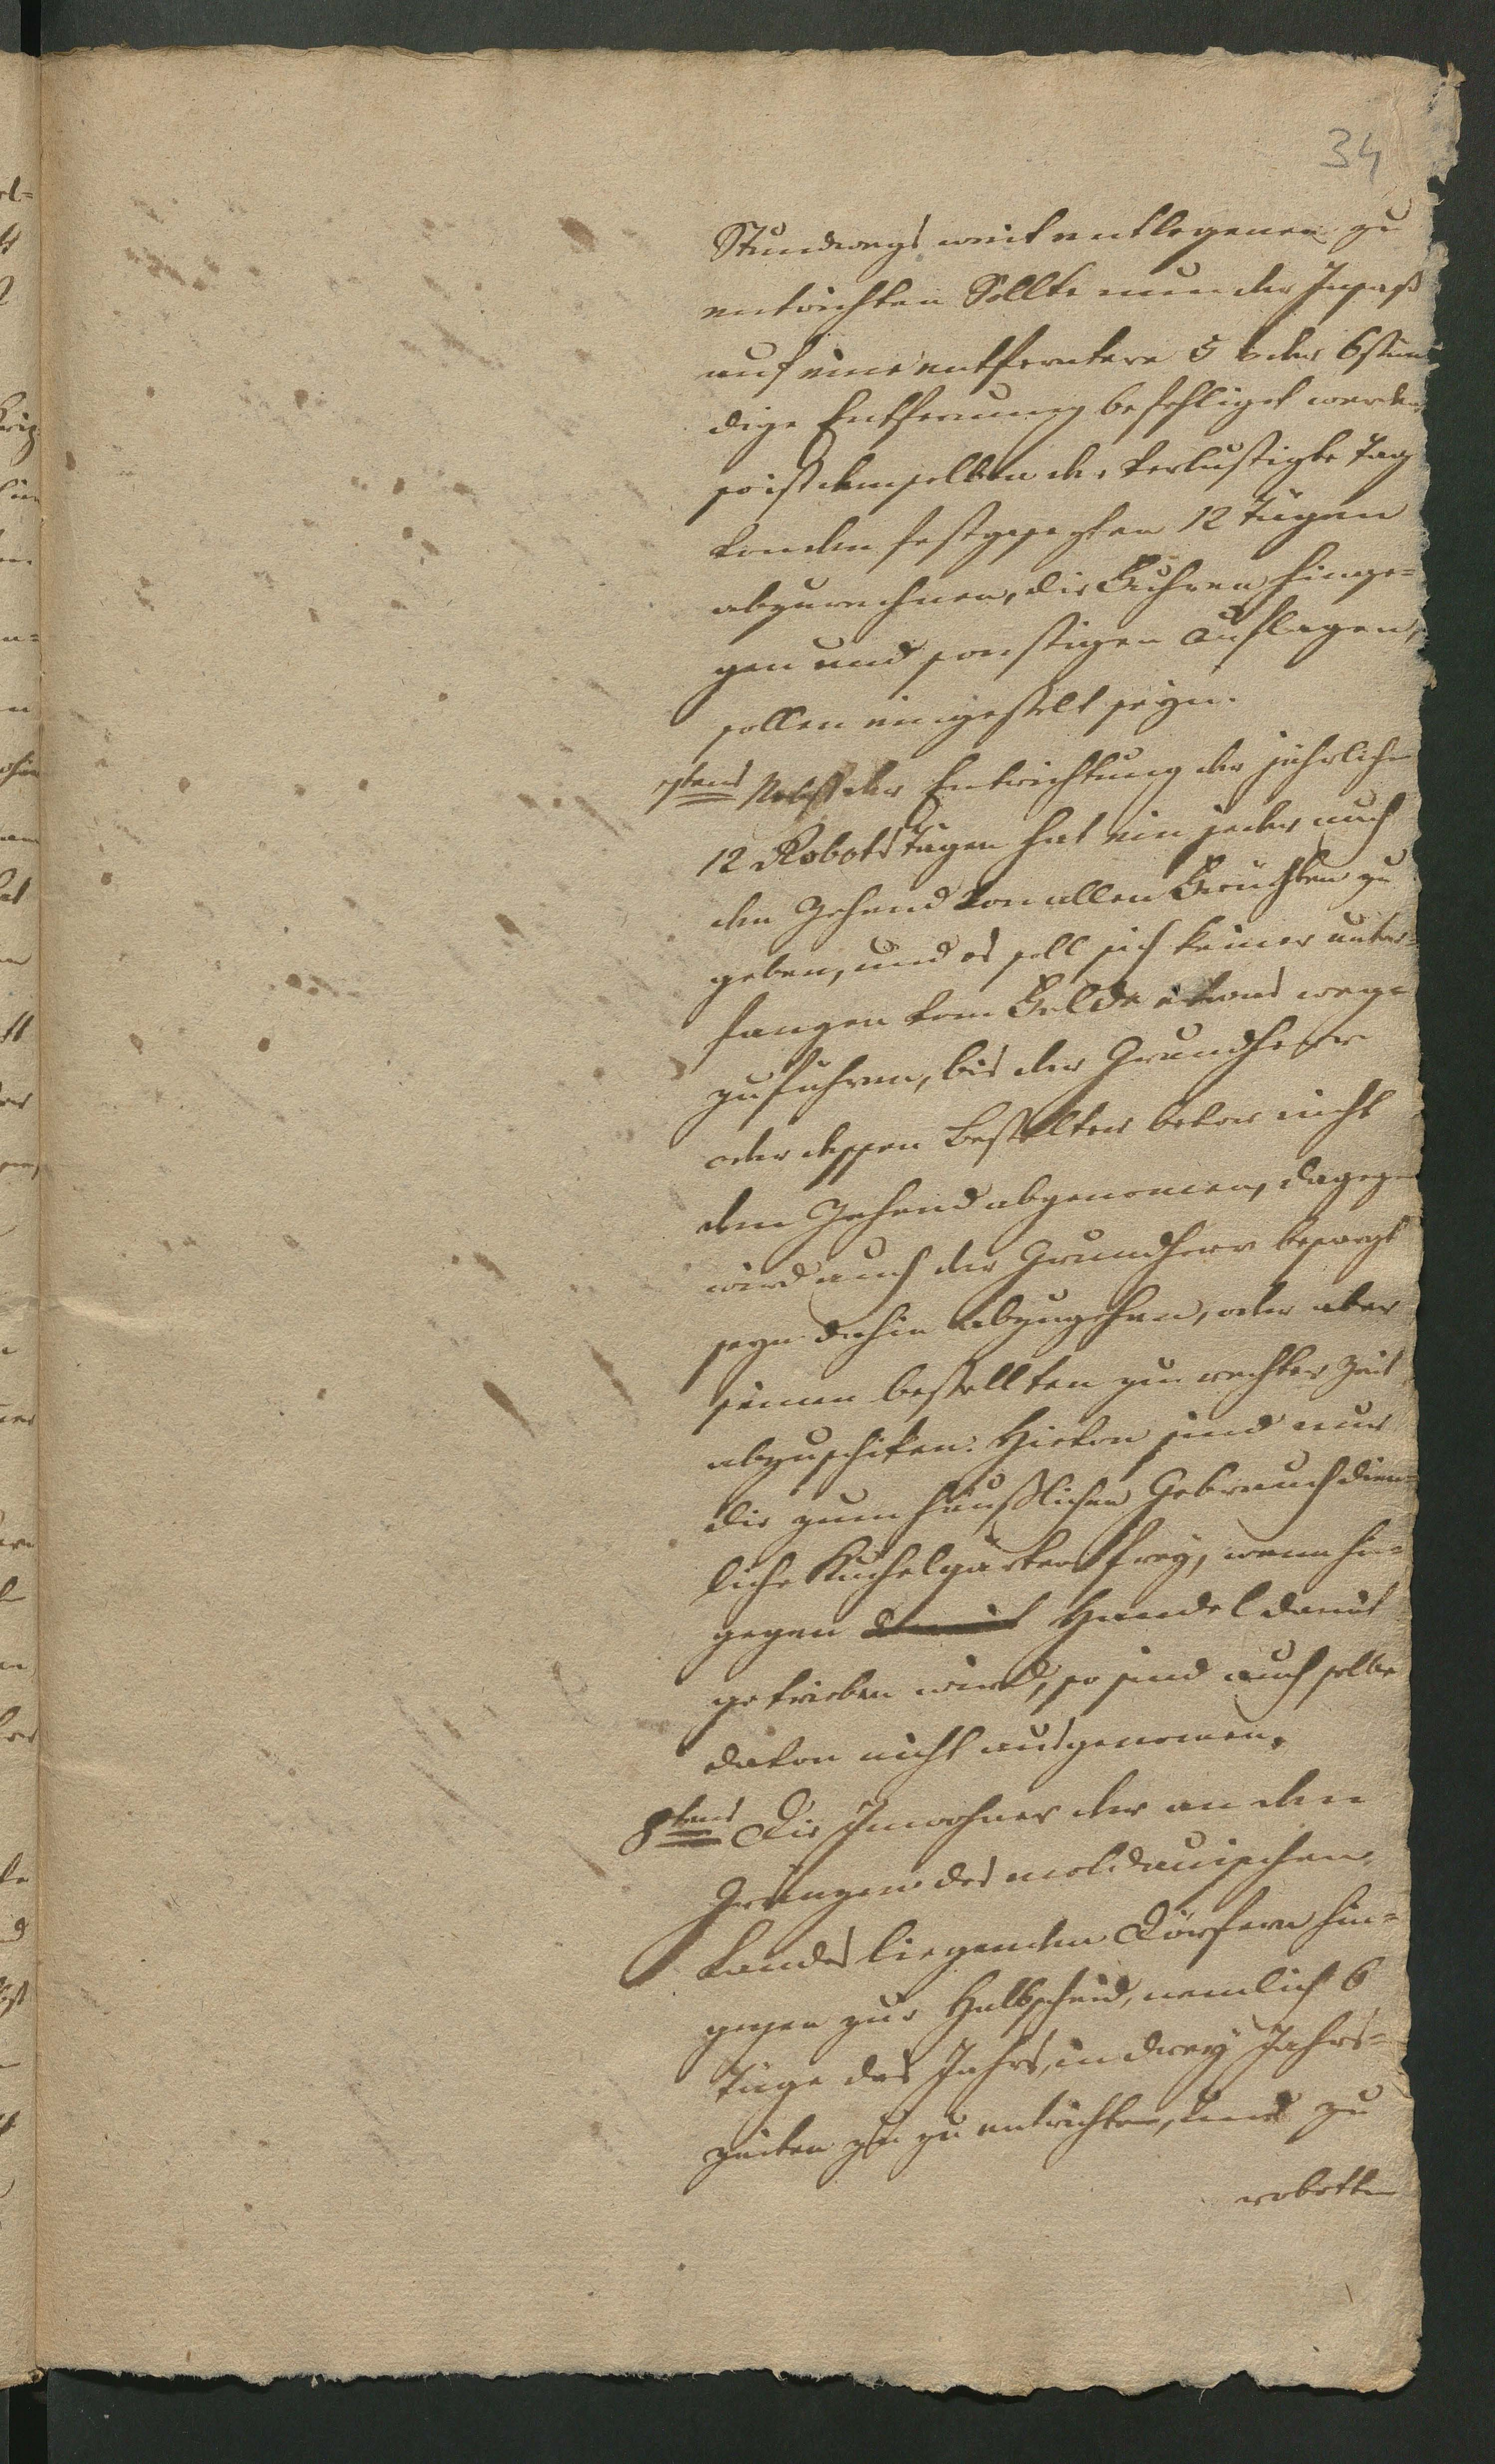 34
Stundwegs weit entlegenen zu
entrichten Sollte nun der Insaß
auf eine entferntere 5 oder 6stün
dige Entfernung befehliget werden
so ist demselben der verlustigte Tag
von den festgesezten 12 Tägen
abzurechnen, die Fuhren hinge=
gen und sonstigen Auflagen,
sollen eingestelt seyn.
7tens Nebst der Entrichtung der jährlichen
12 Robots Tägen hat ein jeder auch
den Zehend von allen Früchten zu
geben, und es soll sich keiner unter=
fangen vom Felde etwas weg=
zuführen, bis der Grundherr
oder dessen Bestelter bevor nicht
den Zehend abgenomen, dagegen
wird auch der Grundherr besorgt
seyn dahin abzugehen, oder aber
seinen bestellten zu rechter Zeit
abzuschiken. Hievon sind nur
die zum häußlichen Gebrauch dien=
liche Kuchelgärten frey, wenn hin=
gegen damit Handel damit
getrieben wird, so sind auch selbe
davon nicht ausgenomen.
8tens Die Inwohner der an den
Gränzen des moldauischen
Landes liegenden Dörfern hin=
gegen zur Halbscheid, nemlich 6
Täge des Jahrs, in drey Jahrs=
zeiten zu zu entrichten, und zu
robotten